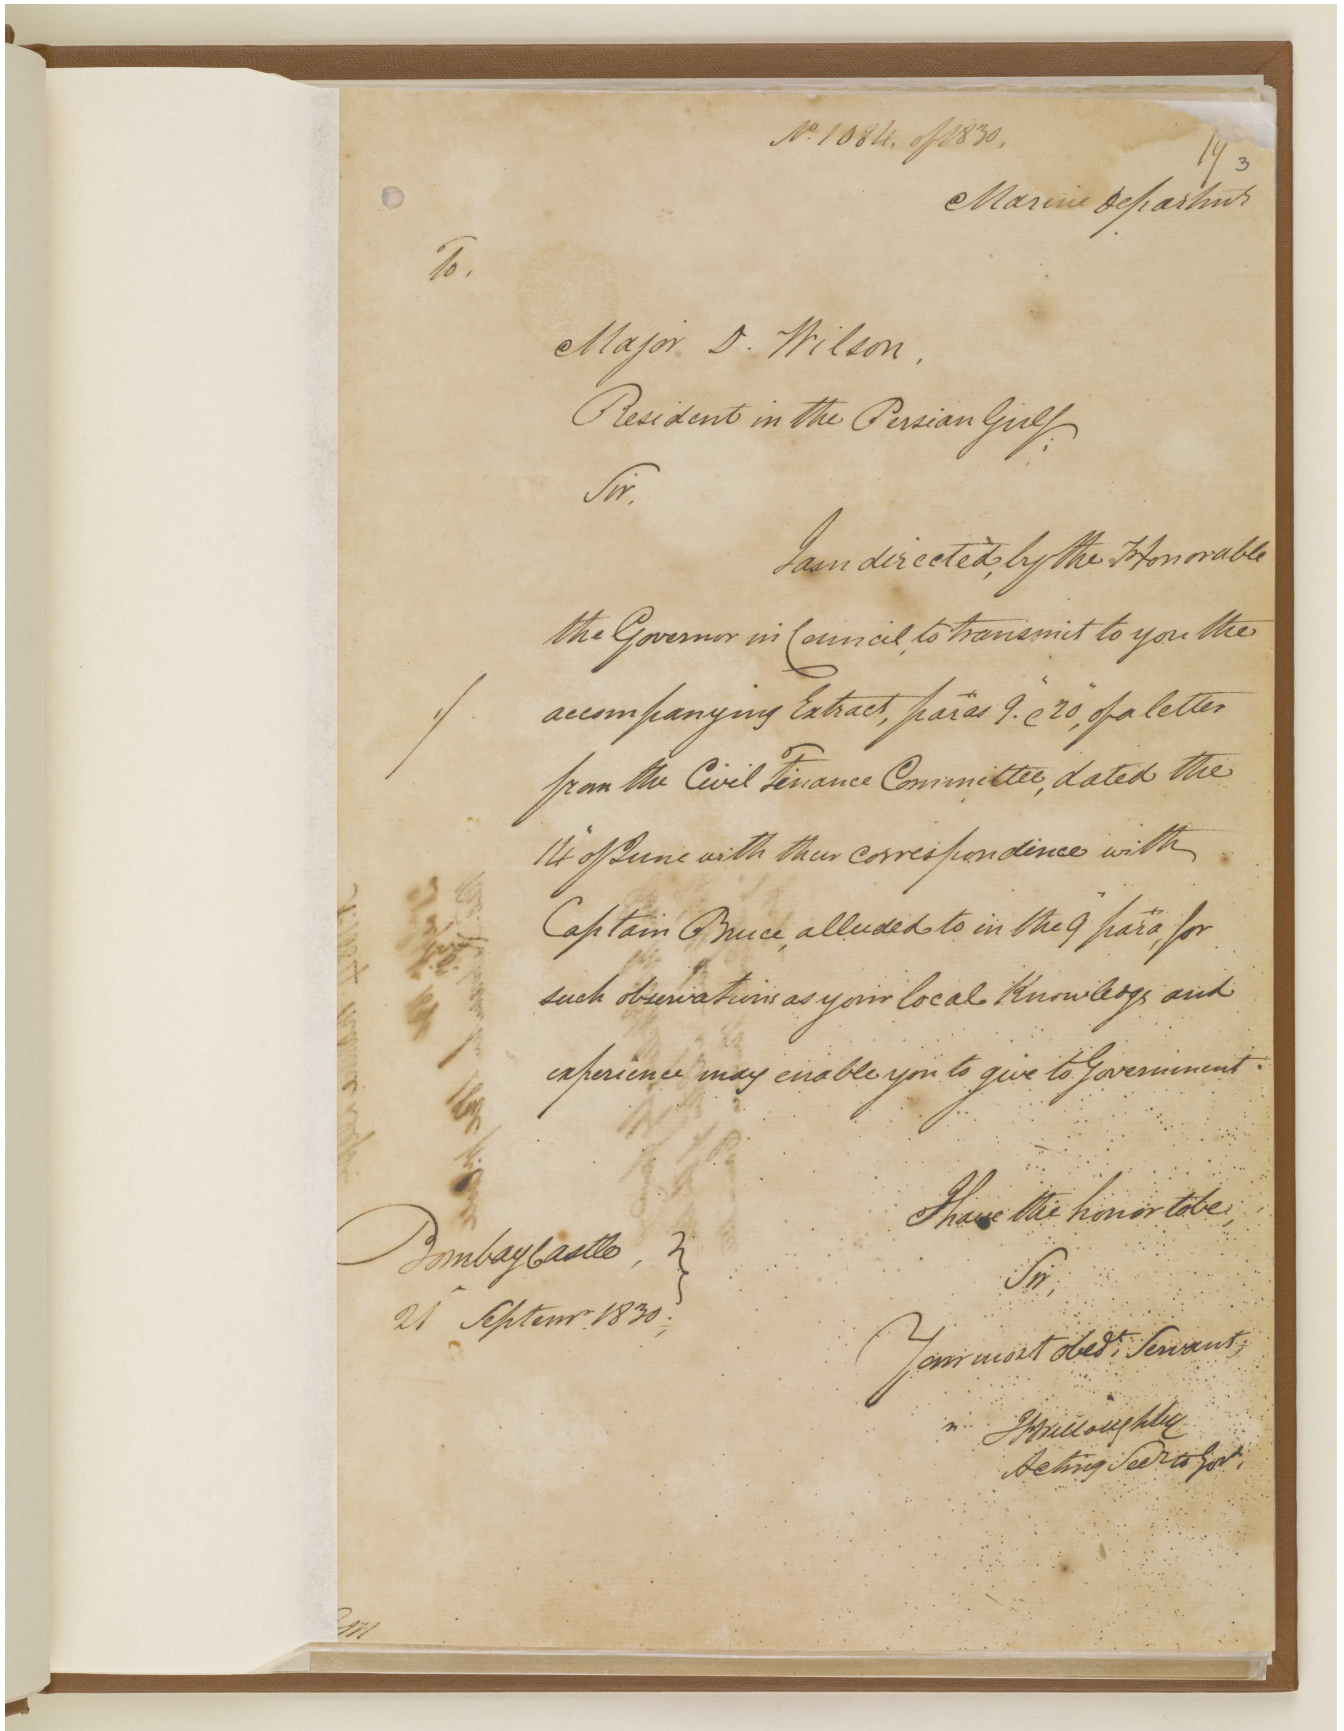 No. 1084. of 1830.
3
Marine Departmt
To.
Major D. Wilson,
Resident in the Persian Gulf;
Sir,
I am directed, by the Honorable
the Governor in Council, to transmit to you the
accompanying Extract, paras 9. & 20, of a letter
from the Civil Finance Committee, dated the
14" of June with their correspondence with
Captain Bruce, alluded to in the 9" para, for
such observations as your local Knowledge and
experience may enable you to give to Government.
I have the honor to be,
Sir,
Your most obedt. Servant,
Willoughby
Acting Secr to Govt.
Bombay Castle,
21" Septemr 1830;